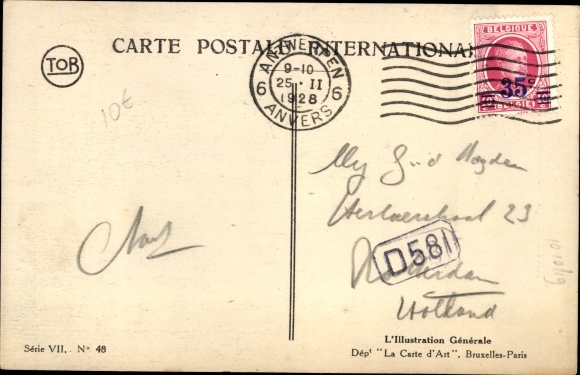 TOB
CARTE POSTALE INTERNATIONALE
ANTWERPEN
9-10
25 · II
1928
6 6
ANVERS
BELGIQUE
35c
BELGIË
10€
Herlaerstraat 23
D581
Rotterdam
Holland
L'Illustration Générale
Dépt "La Carte d'Art", Bruxelles-Paris
Série VII,. No 48